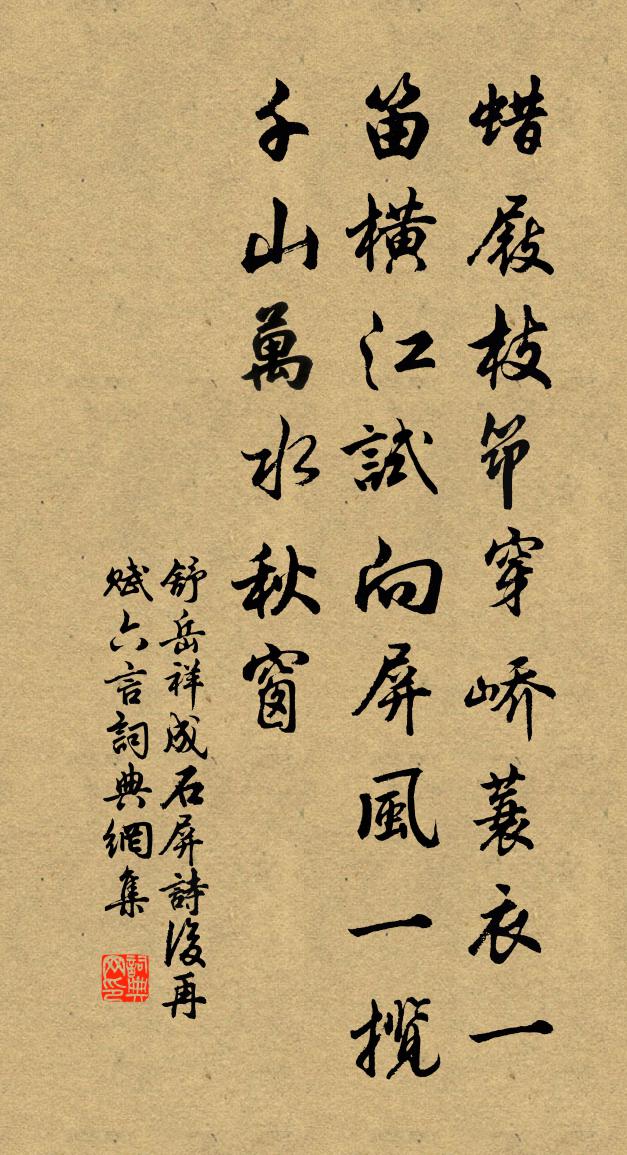 蜡屐枝筇穿峤蓑衣一
笛橫江試向屏風一攬
千山萬水秋窗
舒岳祥成石屏詩後再
賦六言詞典網集
詞典
网印